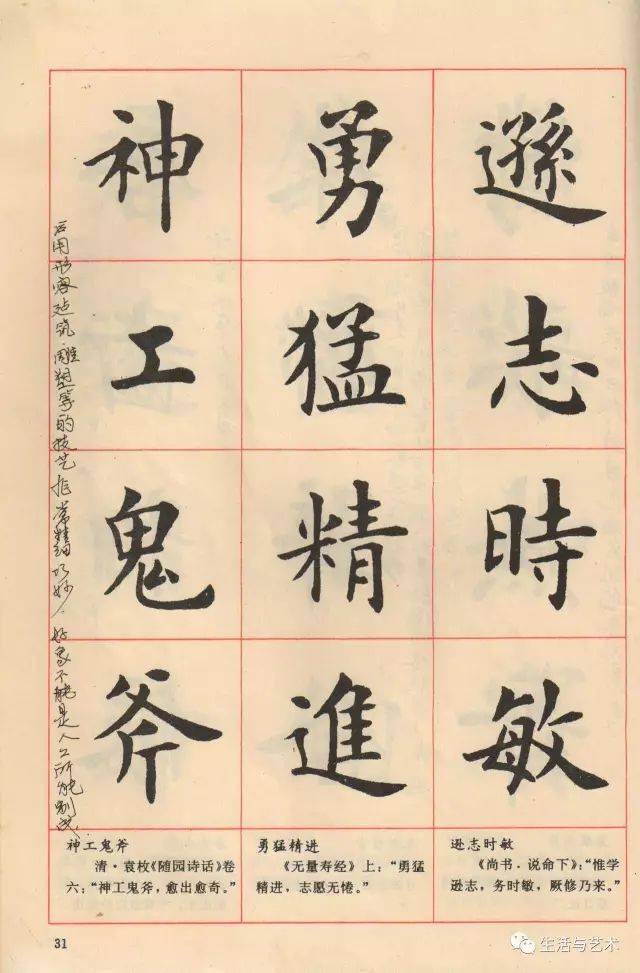 遜志時敏
勇猛精進
神工鬼斧
用形容建筑雕塑等的技艺非常精细巧妙，好象不能是人工所能制成
神工鬼斧
清·袁枚《随园诗话》卷
六：“神工鬼斧，愈出愈奇。”
勇猛精进
《无量寿经》上：“勇猛
精进，志愿无倦。”
逊志时敏
《尚书·说命下》：“惟学
逊志，务时敏，厥修乃来。”
31
生活与艺术